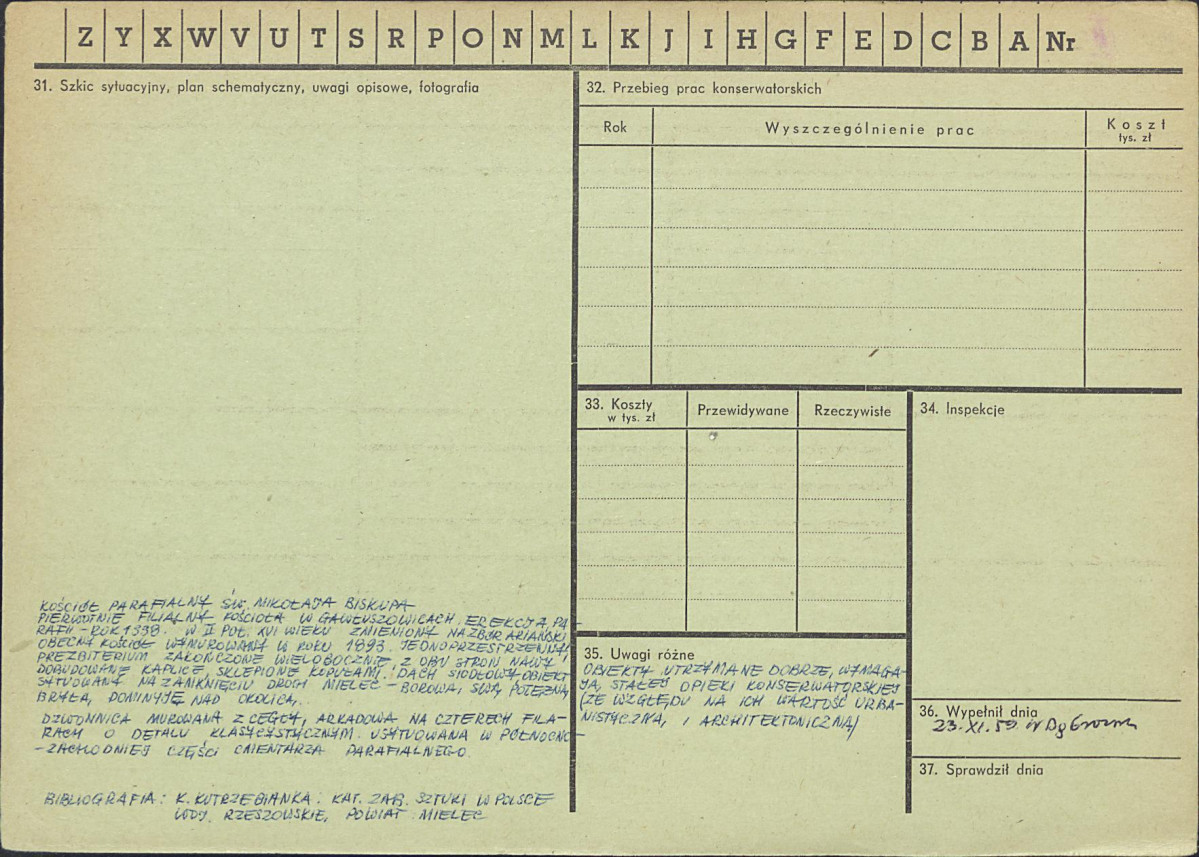 Z Y X W V U T S R P O N M L K J I H G F E D C B A Nr
31. Szkic sytuacyjny, plan schematyczny, uwagi opisowe, fotografia
KOŚCIÓŁ PARAFIALNY ŚW. MIKOŁAJA BISKUPA
PIERWOTNIE FILIALNY KOŚCIOŁA W GAWŁUSZOWICACH. EREKCJA PA-
RAFII - ROK 1338. W II POŁ. XVI WIEKU ZMIENIONY NA ZBÓR ARIAŃSKI
OBECNY KOŚCIÓŁ WYMUROWANY W ROKU 1893. JEDNOPRZESTRZENNY
PREZBITERIUM ZAKOŃCZONE WIELOBOCZNIE, Z OBU STRON NAWY
DOBUDOWANE KAPLICE SKLEPIONE KOPUŁAMI. DACH SIODŁOWY. OBIEKT
SYTUOWANY NA ZAMKNIĘCIU DROGI MIELEC - BOROWA, SWĄ POTĘŻNĄ
BRYŁĄ, DOMINUJE NAD OKOLICĄ.
DZWONNICA MUROWANA Z CEGŁY, ARKADOWA NA CZTERECH FILA-
RACH O DETALU KLASYCYSTYCZNYM. USYTUOWANA W PÓŁNOCNO-
-ZACHODNIEJ CZĘŚCI CMENTARZA PARAFIALNEGO.
BIBLIOGRAFIA: K. KUTRZEBIANKA: KAT. ZAB. SZTUKI W POLSCE
WOJ. RZESZOWSKIE, POWIAT MIELEC
32. Przebieg prac konserwatorskich
Rok
Wyszczególnienie prac
Koszt
tys. zł
33. Koszty
w tys. zł
Przewidywane
Rzeczywiste
34. Inspekcje
35. Uwagi różne
OBIEKTY UTRZYMANE DOBRZE, WYMAGA-
JĄ, STAŁEJ OPIEKI KONSERWATORSKIEJ
(ZE WZGLĘDU NA ICH WARTOŚĆ URBA-
NISTYCZNĄ, I ARCHITEKTONICZNĄ)
36. Wypełnił dnia
23. XI. 59
37. Sprawdził dnia